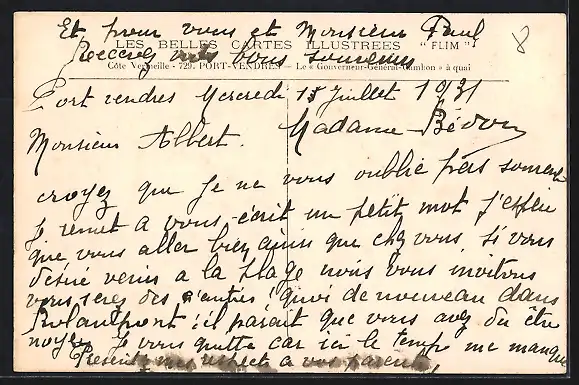 Et pour vous et Monsieur Paul
LES BELLES CARTES ILLUSTREES "FLIM"
Recevez nos bons souvenirs
Côte Vermeille - 729. PORT-VENDRES - Le « Gouverneur-Général-Cambon » à quai
8
Port vendres Mercredi 15 Juillet 1931
Madame
Monsieur Albert.
croyez que Je ne vous oublie pas
Je remet a vous écrit un petit mot J'espère
que vous aller bien ainsi que chez vous si vous
désiré venir a la plage nous vous invitons
vous serez des notres quoi de nouveau dans
il parait que vous avez du être
noyer Je vous quitte car ici le temp me manque
Presentez mes respect a vos parents,